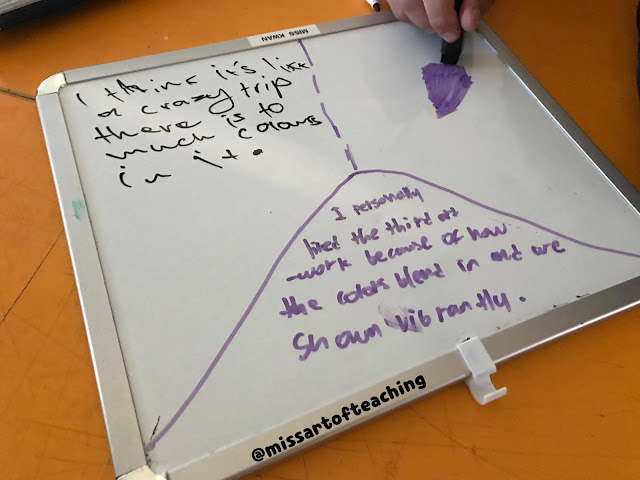 MISS KWAN
I think it's like
a crazy trip
there is to
much colours
in it.
I personally
liked the third art
-work because of how
the colors blend in and are
shown vibrantly.
@missartofteaching